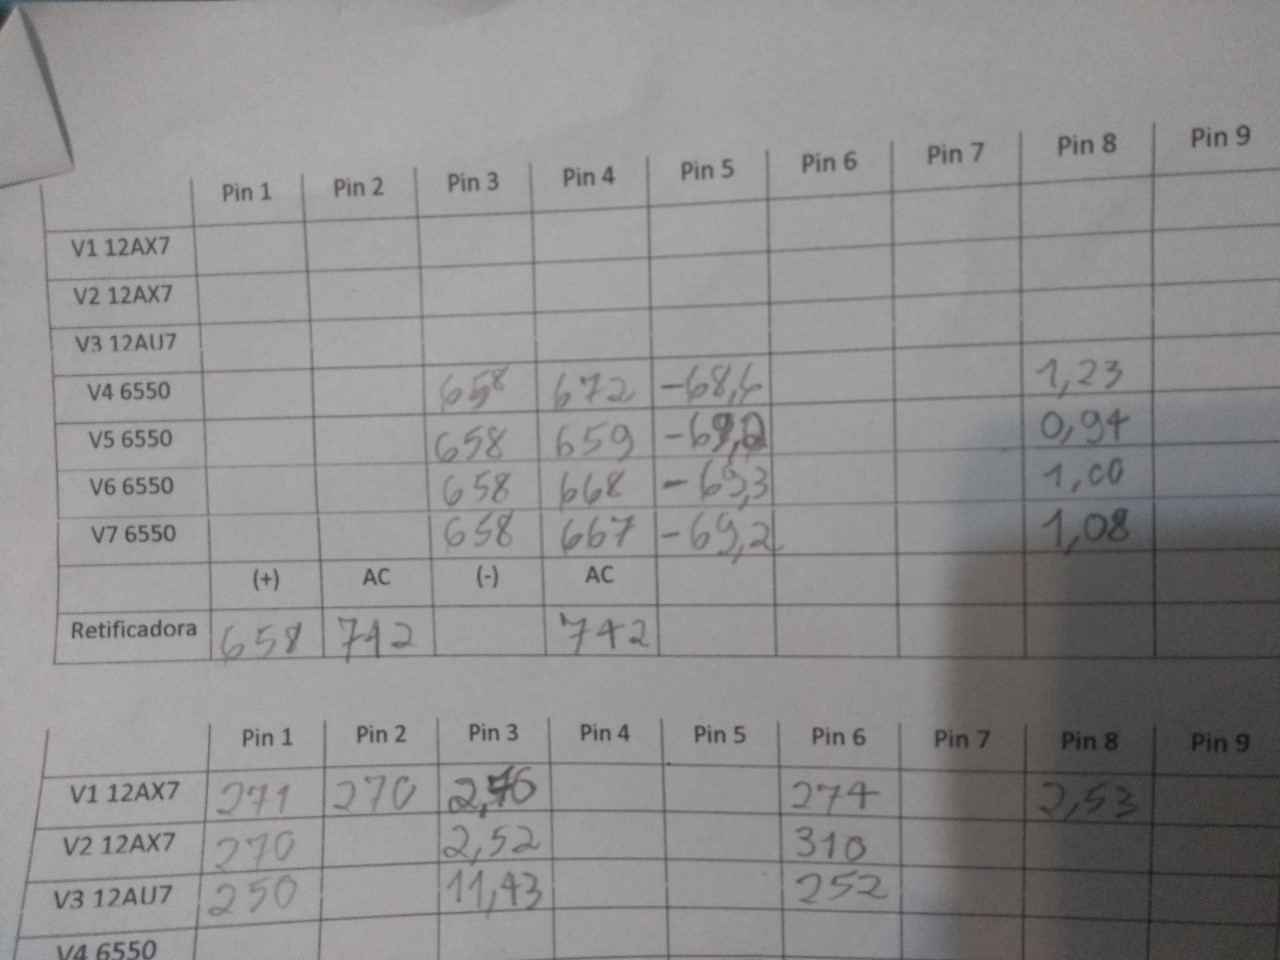 Pin 1 Pin 2 Pin 3 Pin 4 Pin 5 Pin 6 Pin 7 Pin 8 Pin 9
V1 12AX7
V2 12AX7
V3 12AU7
V4 6550 658 672 -68,6 1,23
V5 6550 658 659 0,94
V6 6550 658 668 -69,3 1,00
V7 6550 658 667 -69,2 1,08
(+) AC (-) AC
Retificadora 658 742 742
Pin 1 Pin 2 Pin 3 Pin 4 Pin 5 Pin 6 Pin 7 Pin 8 Pin 9
V1 12AX7 271 270 274 2,53
V2 12AX7 270 2,52 310
V3 12AU7 250 11,43 252
V4 6550